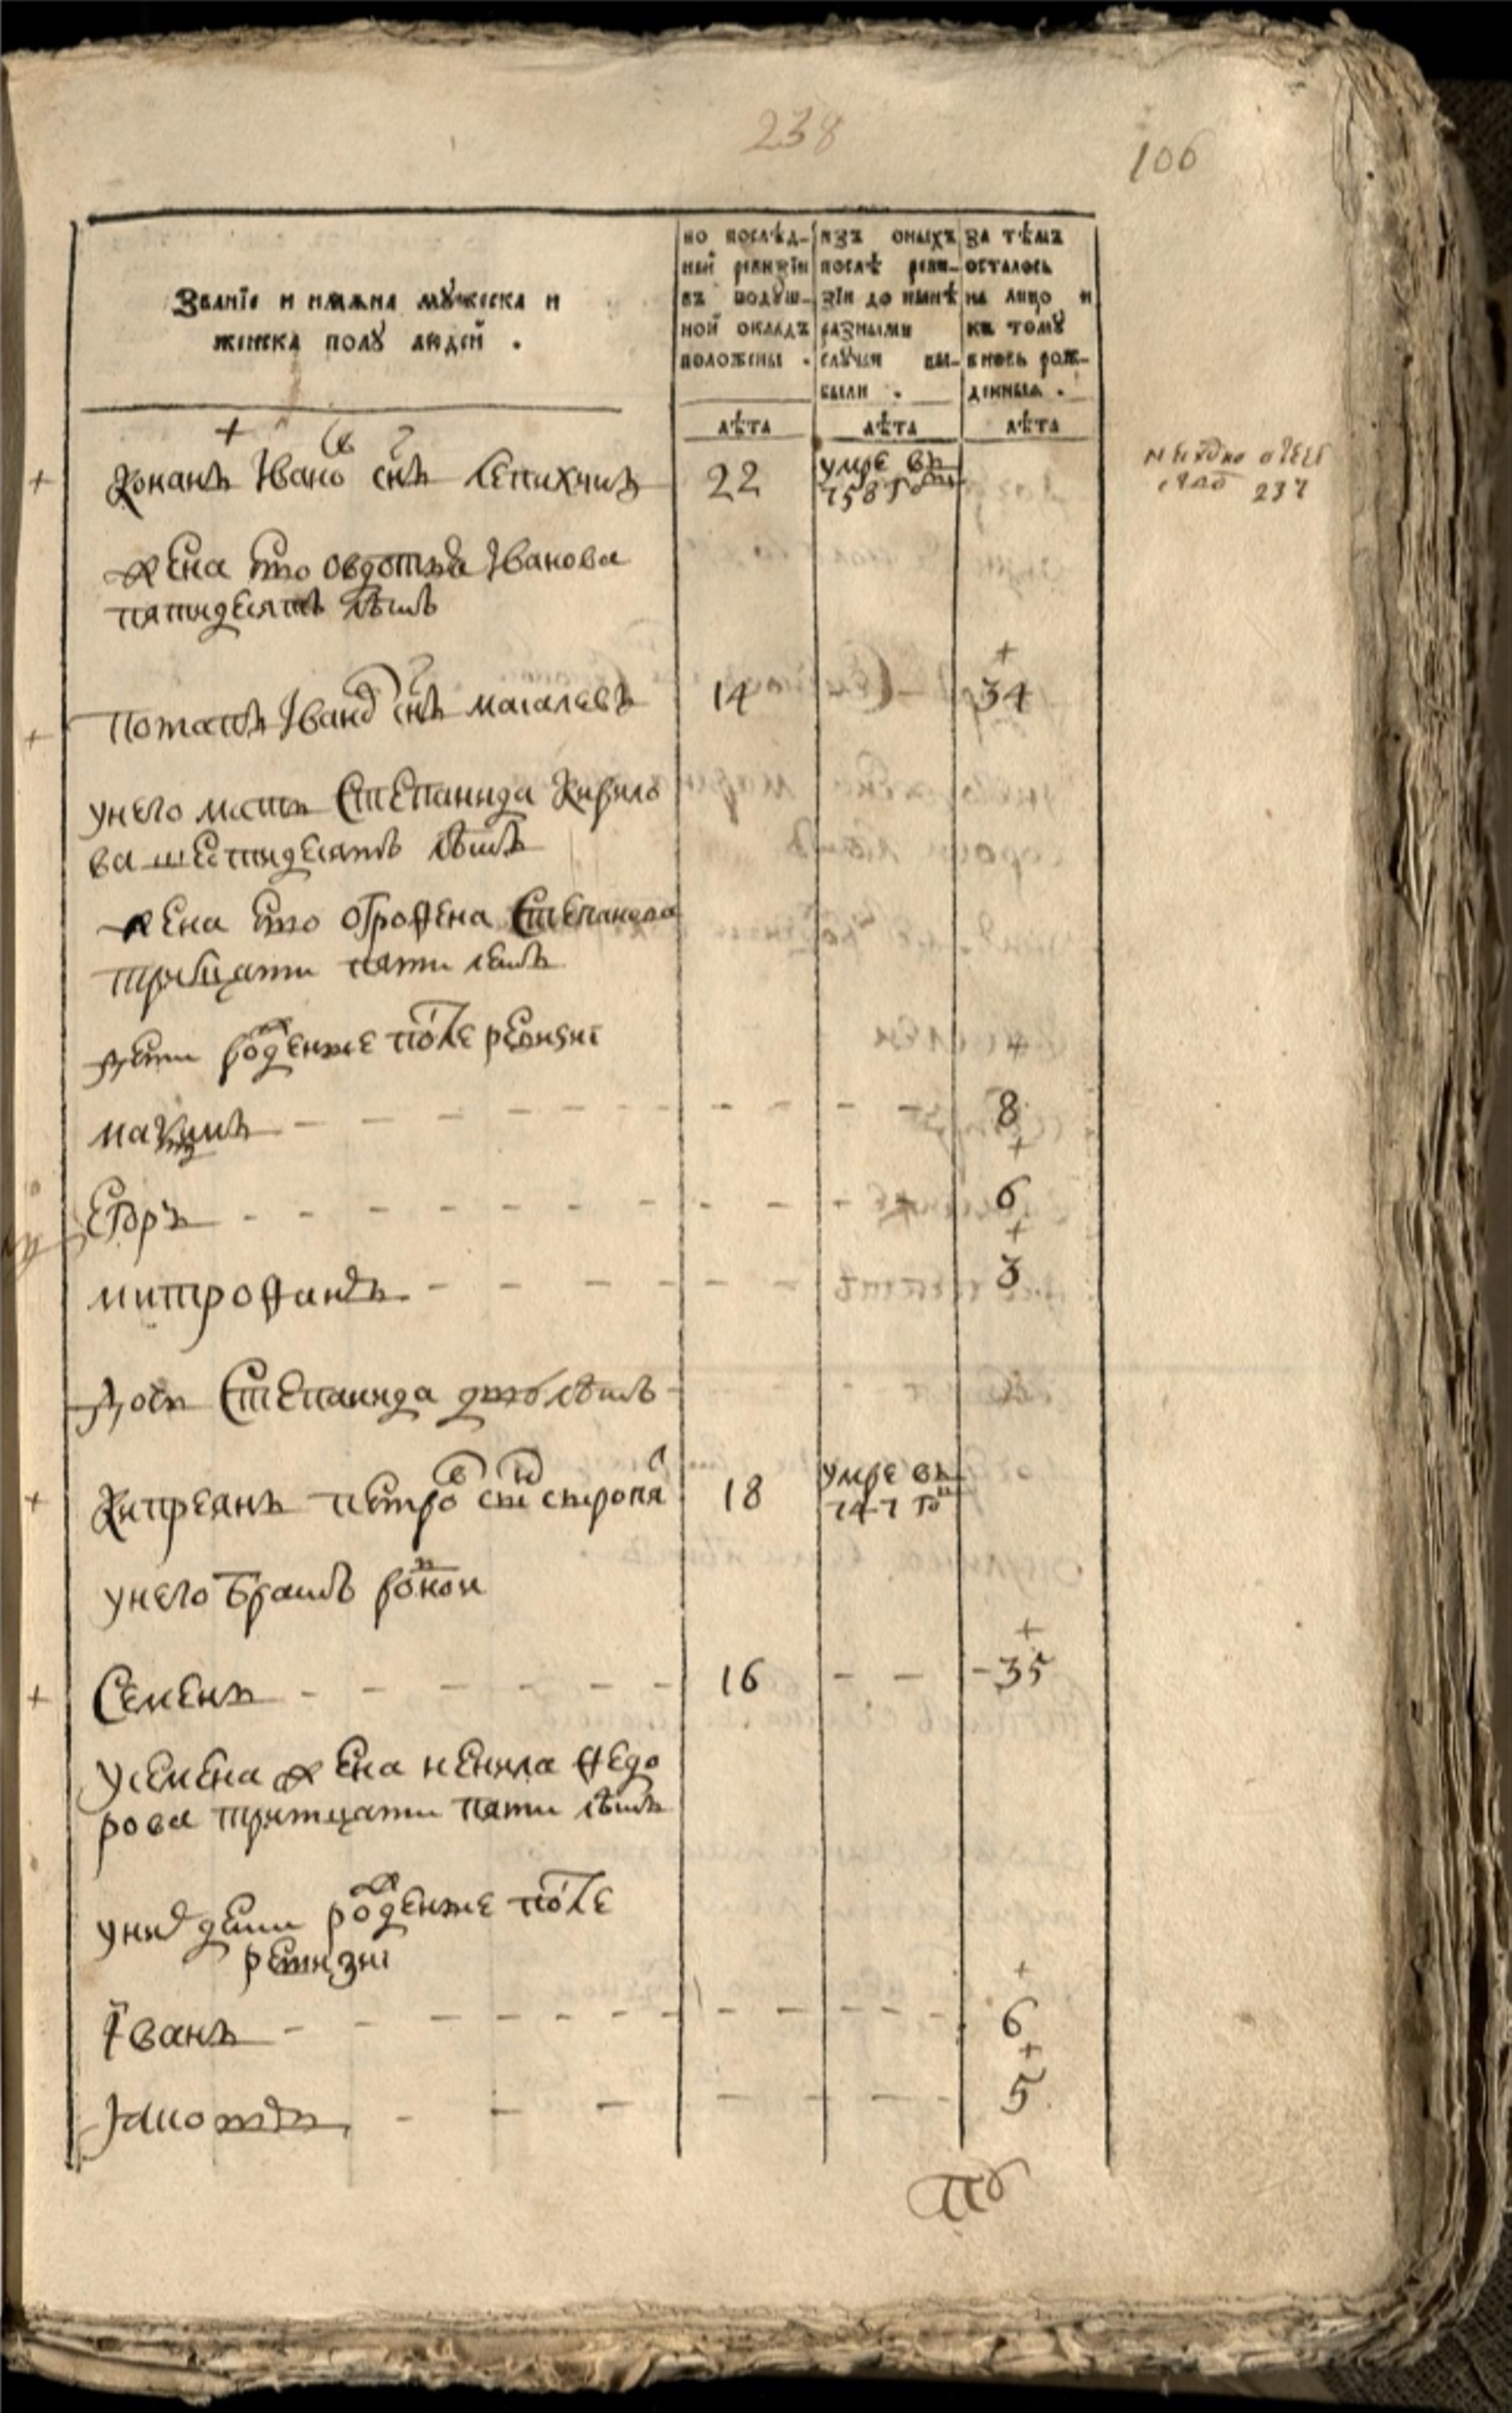 238
106
Званїе и имяна мꙋжеска и
женска полꙋ людей .
по послѣд-
ней ревизїи
въ подꙋш-
ной окладъ
положены .
изъ оныхъ
после реви-
зїи до нынѣ
разными
слꙋчаи вы-
были .
за тѣмъ
осталось
на лицо и
къ томꙋ
вновь рож-
денныя .
лѣта
лѣта
лѣта
Конанъ Іванов снъ 22 умре въ
758 го
жена ево овдотья Іванова
пятидесятъ лѣтъ
Потапъ Іванов снъ 14 34
унего мать Степанида Кирило
ва шестидесятъ лѣтъ
жена ево офрофена Степанова
тритцати пяти летъ
дети рожденые после ревизиі
8
Егоръ 6
митрофанъ 3
дочь Степанида лѣтъ
Кипреянъ петров снъ 18 умре въ
747 го
унего братъ родной
Семенъ 16 35
усемена жена ненила федо
рова тритцати пяти лѣтъ
уних дети рожденые после
ревизиі
Їванъ 6
5